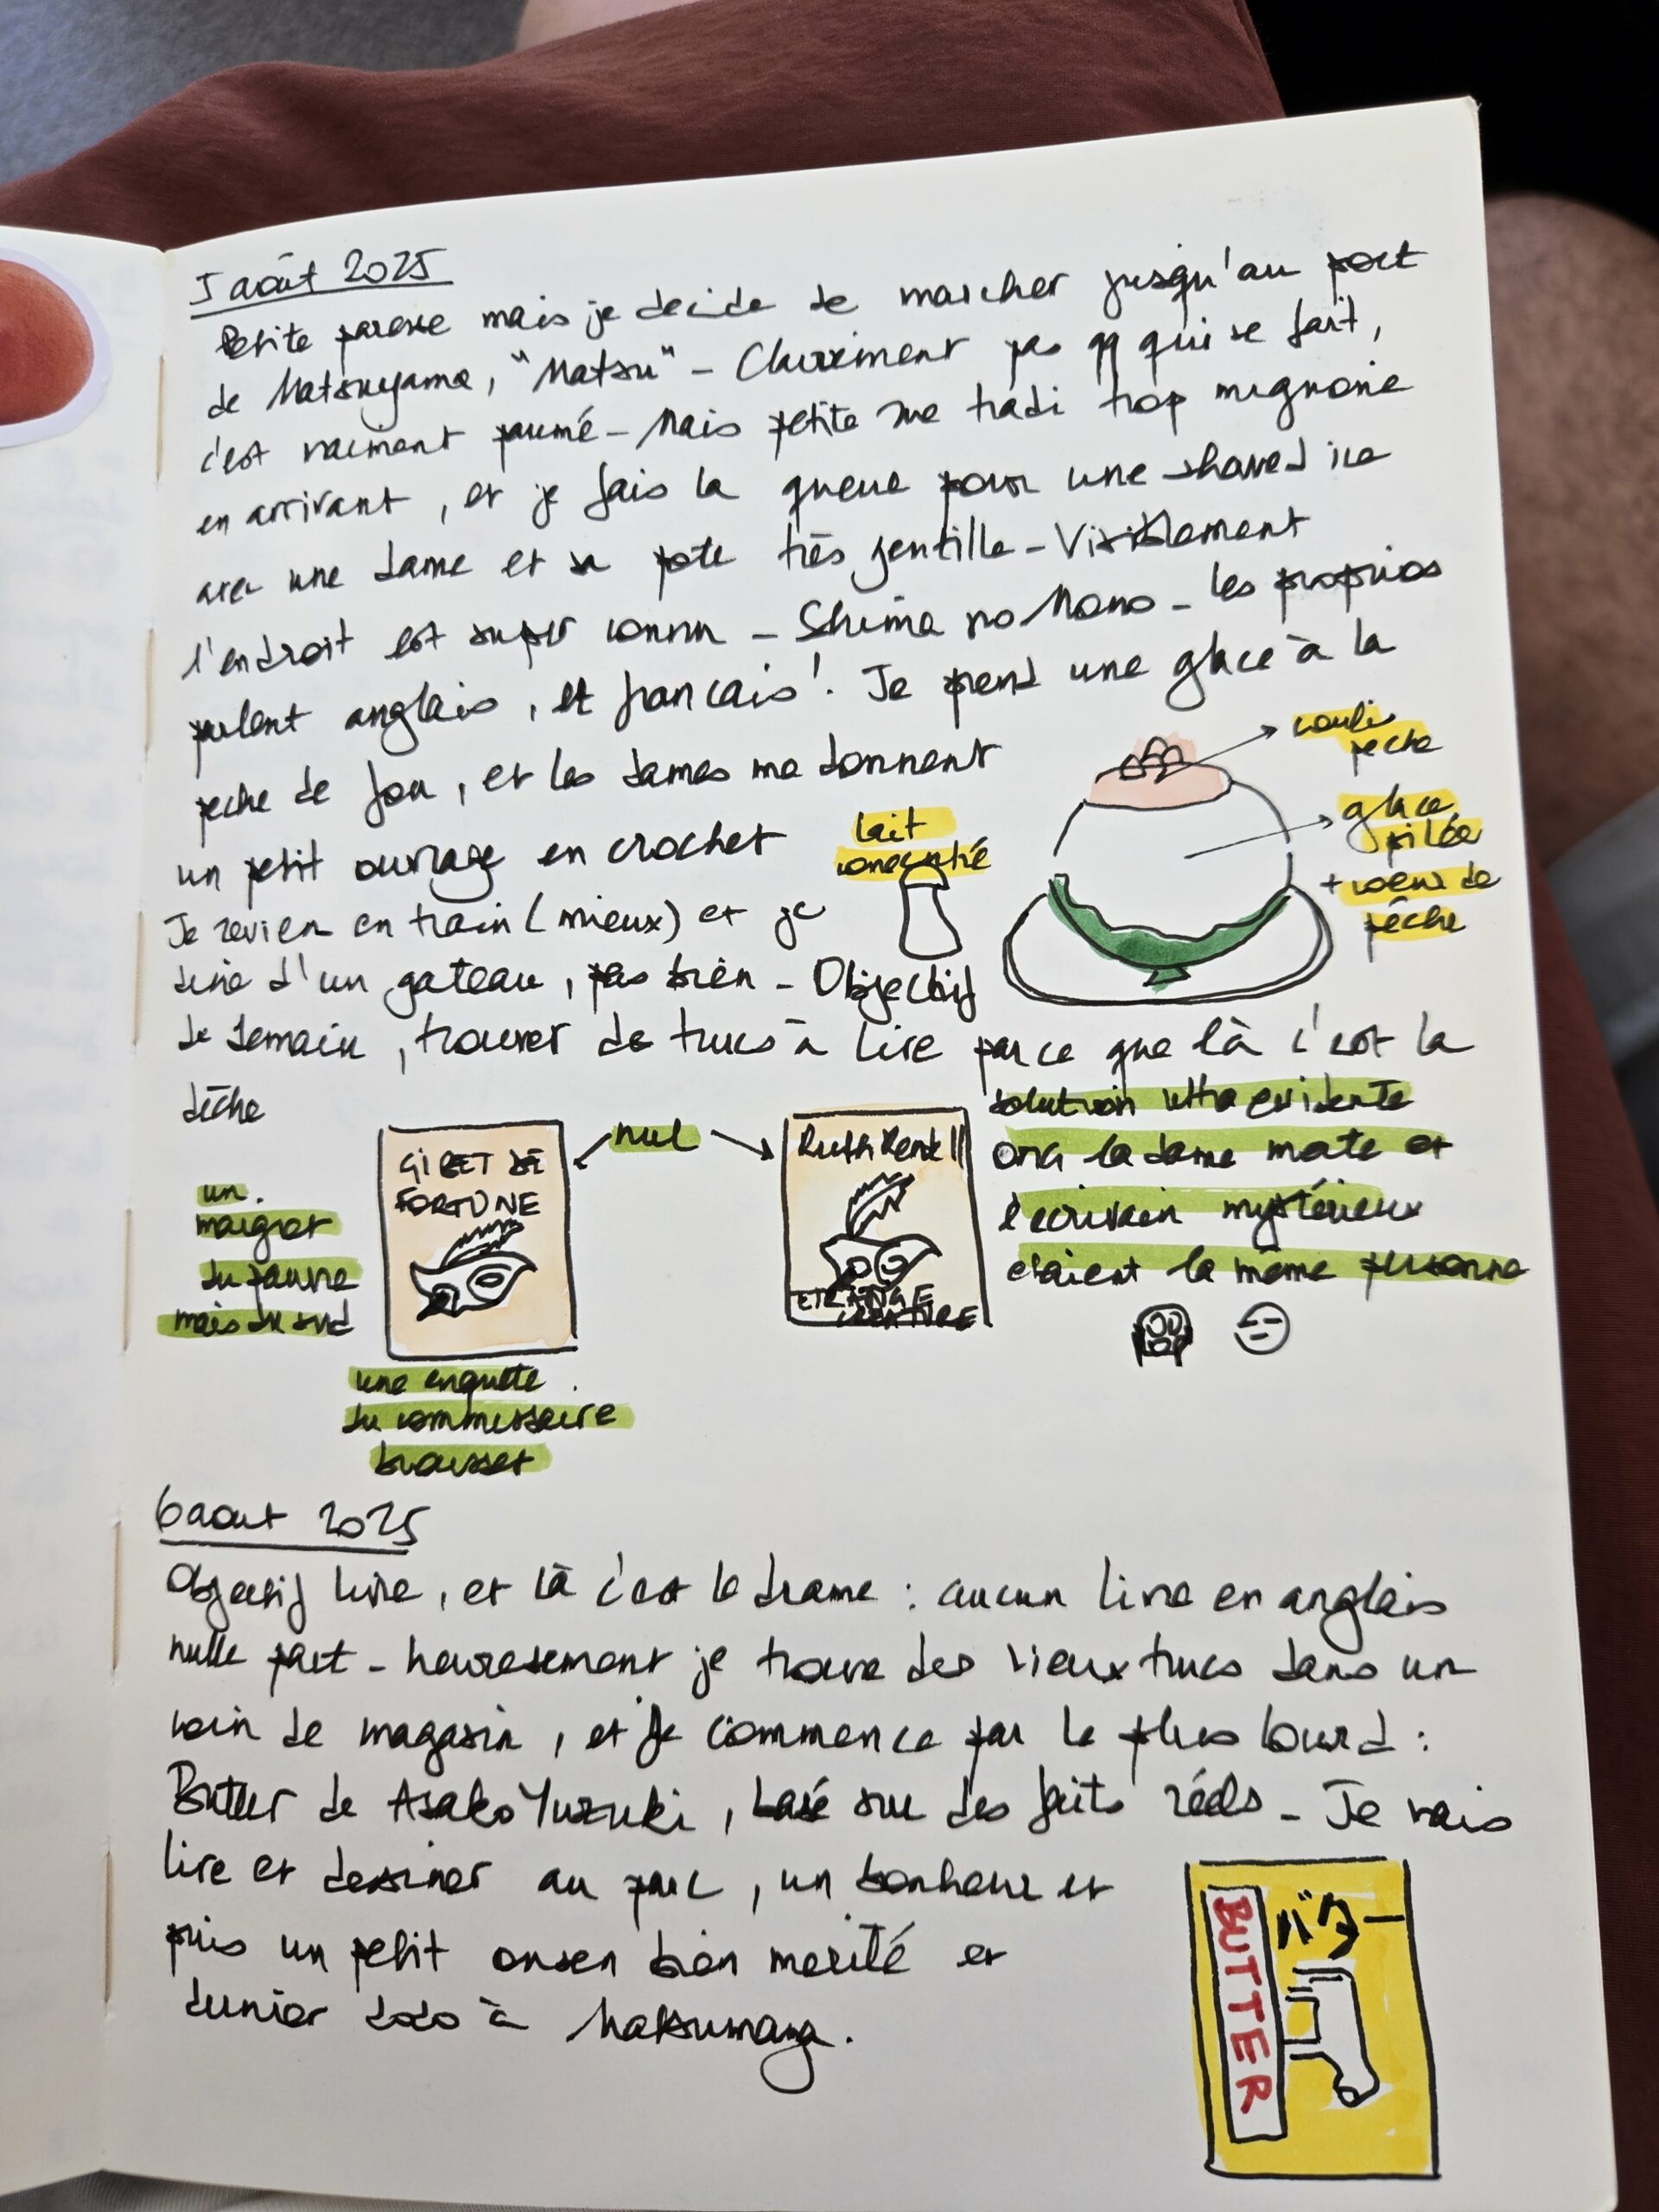 5 août 2025
Petite paresse mais je decide de marcher jusqu'au port
de Matsuyama, "Matsu" - Clairement pas qq qui se fait,
c'est vraiment paumé - Mais petite rue tradi trop mignonne
en arrivant, et je fais la queue pour une shaved ice
avec une dame et sa pote très gentille - Visiblement
l'endroit est super connu - Schima no Mono - les proprios
parlent anglais, et francais! Je prend une glace à la
peche de fou, et les dames me donnent
un petit ouvrage en crochet
Je revien en train (mieux) et je
dine d'un gateau, pas bien - Objectif
de demain, trouver de trucs à lire parce que là c'est la
dèche
coulis
peche
glace
pilée
+ coeur de
pêche
lait
concentré
nul
GIBET DE
FORTUNE
un
maigret
du pauvre
mais du sud
une enquête
du commissaire
brousset
Ruth Rendell
ETRANGE
CREATURE
solution ultra evidente
OMG la dame morte et
l'ecrivain mystérieux
etaient la même personne
6 aout 2025
Objectif livre, et là c'est le drame : aucun livre en anglais
nulle part - heureusement je trouve des vieux trucs dans un
coin de magasin, et je commence par le plus lourd :
Butter de Asako Yuzuki, basé sur des faits réels - Je vais
lire et dessiner au parc, un bonheur et
puis un petit onsen bien merité et
dernier dodo à Matsumaya.
BUTTER
バター